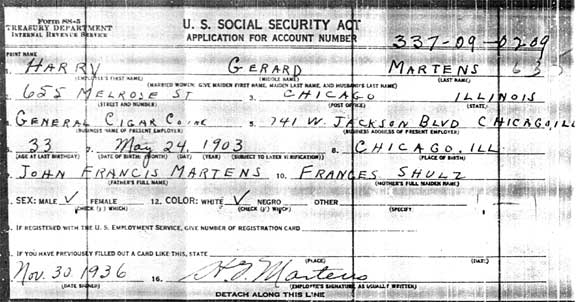 Form SS-5
TREASURY DEPARTMENT
INTERNAL REVENUE SERVICE
U. S. SOCIAL SECURITY ACT
APPLICATION FOR ACCOUNT NUMBER
337-09-0209
PRINT NAME
HARRY GERARD MARTENS
(EMPLOYEE'S FIRST NAME) (MIDDLE NAME) (LAST NAME)
(MARRIED WOMEN: GIVE MAIDEN FIRST NAME, MAIDEN LAST NAME, AND HUSBAND'S LAST NAME)
655 MELROSE ST 3. CHICAGO ILLINOIS
(STREET AND NUMBER) (POST OFFICE) (STATE)
GENERAL CIGAR CO. INC 5. 741 W. JACKSON BLVD CHICAGO, ILL
(BUSINESS NAME OF PRESENT EMPLOYER) (BUSINESS ADDRESS OF PRESENT EMPLOYER)
33 7. May 24, 1903 8. CHICAGO, ILL
(AGE AT LAST BIRTHDAY) (DATE OF BIRTH: (MONTH) (DAY) (YEAR) (SUBJECT TO LATER VERIFICATION)) (PLACE OF BIRTH)
JOHN FRANCIS MARTENS 10. FRANCES SHULZ
(FATHER'S FULL NAME) (MOTHER'S FULL MAIDEN NAME)
SEX: MALE √ FEMALE 12. COLOR: WHITE √ NEGRO OTHER
(CHECK (√) WHICH) (CHECK (√) WHICH) (SPECIFY)
IF REGISTERED WITH THE U. S. EMPLOYMENT SERVICE, GIVE NUMBER OF REGISTRATION CARD
IF YOU HAVE PREVIOUSLY FILLED OUT A CARD LIKE THIS, STATE
(PLACE) (DATE)
Nov. 30 1936 16. H G Martens
(DATE SIGNED) (EMPLOYEE'S SIGNATURE, AS USUALLY WRITTEN)
DETACH ALONG THIS LINE